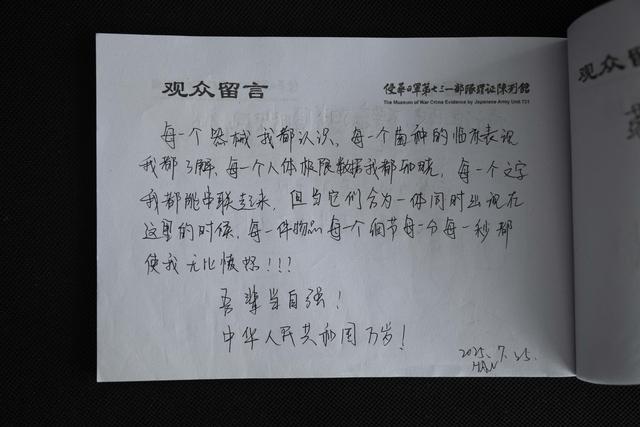 观众留言
侵华日军第七三一部队罪证陈列馆
The Museum of War Crime Evidence by Japanese Army Unit 731
每一个器械我都认识，每一个菌种的临床表现
我都了解，每一个人体极限数据我都知晓，每一个文字
我都能串联起来，但当它们合为一体同时出现在
这里的时候，每一件物品每一个细节每一分每一秒都
使我无比愤怒！！！
吾辈当自强！
中华人民共和国万岁！
2025.7.25.
HAN
观众